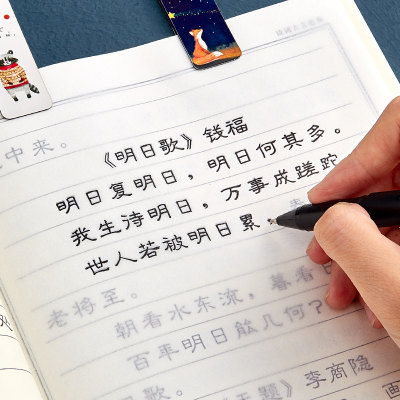 中来。
《明日歌》钱福
明日复明日，明日何其多。
我生待明日，万事成蹉跎
世人若被明日累，
老将至。
朝看水东流，暮看日
百年明日能几何？
歌。 题》李商隐